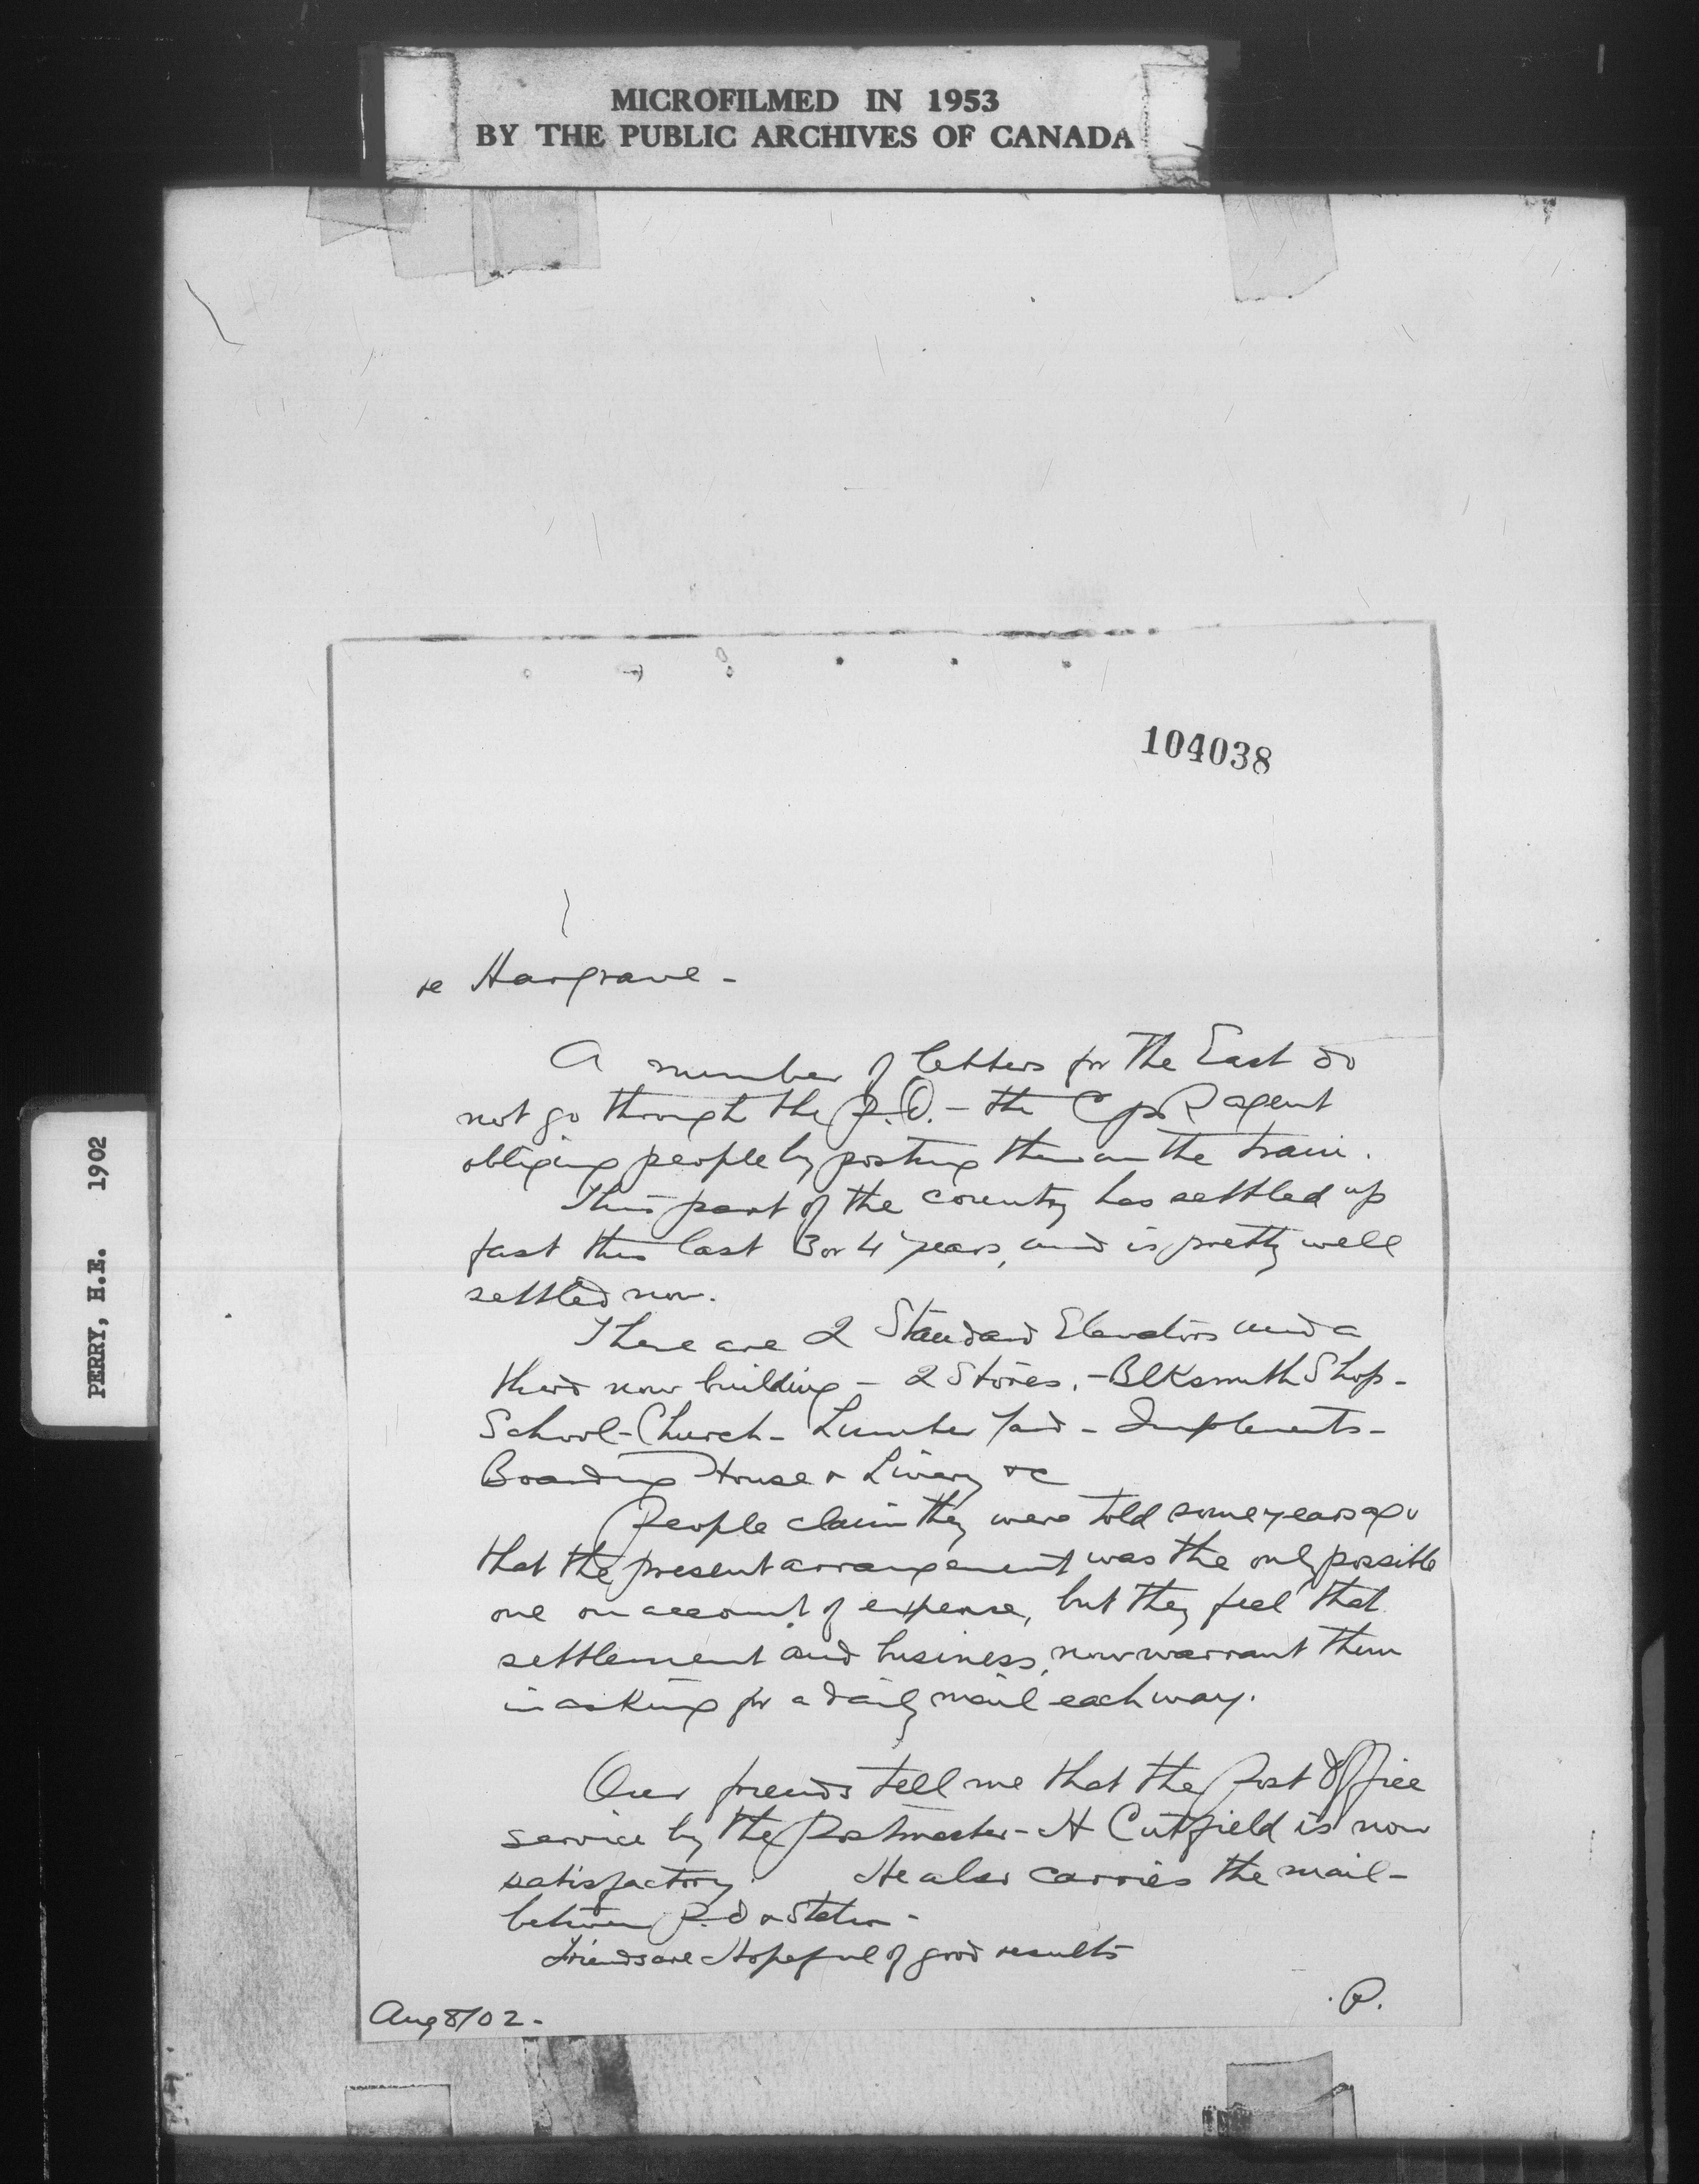 MICROFILMED IN 1953
BY THE PUBLIC ARCHIVES OF CANADA
PERRY, H.E. 1902
104038
re Hargrave -
A number of letters for the East do
not go through the P.O. - the CPR agent
obliging people by posting them on the train.
This part of the country has settled up
fast this last 3 or 4 years, and is pretty well
settled now.
There are 2 Standard Elevators and a
third now building - 2 Stores. - Blksmith Shop -
School - Church - Lumber Yard - Implements -
Boarding House & Livery &c
People claim they were told some years ago
that the present arrangement was the only possible
one on account of expense, but they feel that
settlement and business, now warrant them
in asking for a daily mail each way.
Our friends tell me that the Post Office
service by the Postmaster - H Cutfield is now
satisfactory. He also carries the mail -
between P.O & Station -
Friends are Hopeful of good results
P.
Aug 8/02 -